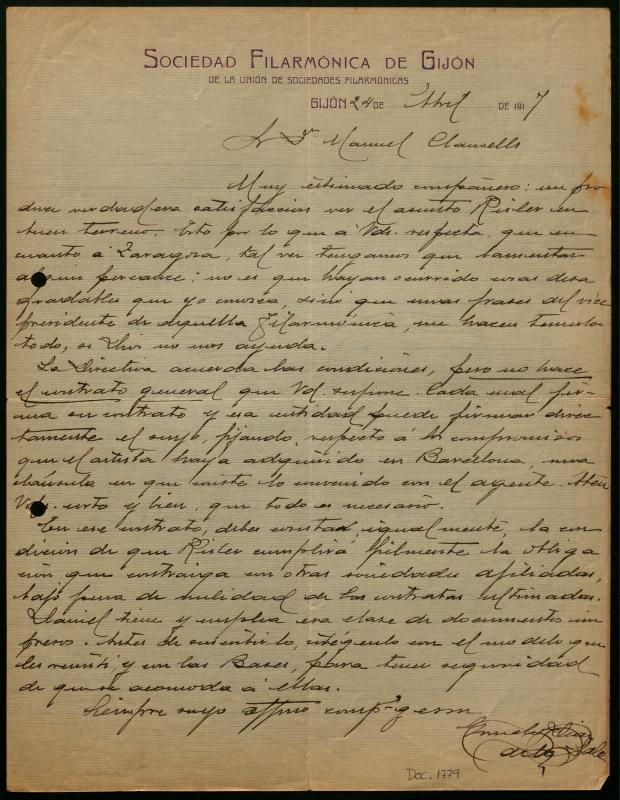 SOCIEDAD FILARMÓNICA DE GIJÓN
DE LA UNIÓN DE SOCIEDADES FILARMÓNICAS
GIJÓN 24 DE Abril DE 1917
Sr Dn Manuel Clausells
Muy estimado compañero: me pro
duce verdadera satisfaccion ver el asunto Risler en
buen terreno. Esto por lo que á Vds. respecta, que en
cuanto á Zaragoza, tal vez tengamos que lamentar
algun percance: no es que hayan ocurrido cosas desa
gradables que yo conozca, sino que unas frases del vice
presidente de aquella Filarmónica, me hacen temerlo
todo, si Dios no nos ayuda.
La Directiva acuerda las condiciónes, pero no hace
el contrato general que Vd. supone. Cada cual fir-
ma su contrato y esa entidad puede firmar direc
tamente el suyo, fijando, respecto á los compromisos
que el artista haya adquirido en Barcelona, una
cláusula en que conste lo convenido con el agente. Aten
Vds. corto y bien, que todo es necesario.
En ese contrato, debes constar, igualmente, la con
dicion de que Risler cumplirá fielmente la obliga
cion que contraiga con otras sociedades afiliadas,
bajo pena de nulidad de los contratos ultimados.
Daniel tiene y emplea esa clase de documentos im
presos. Antes de suscribirlo, coteguenlo con el modelo que
les remití y con las Bases, para tener seguridad
de que se acomoda á ellas.
Siempre suyo affmo comp.º q e s m
Doc. 1779